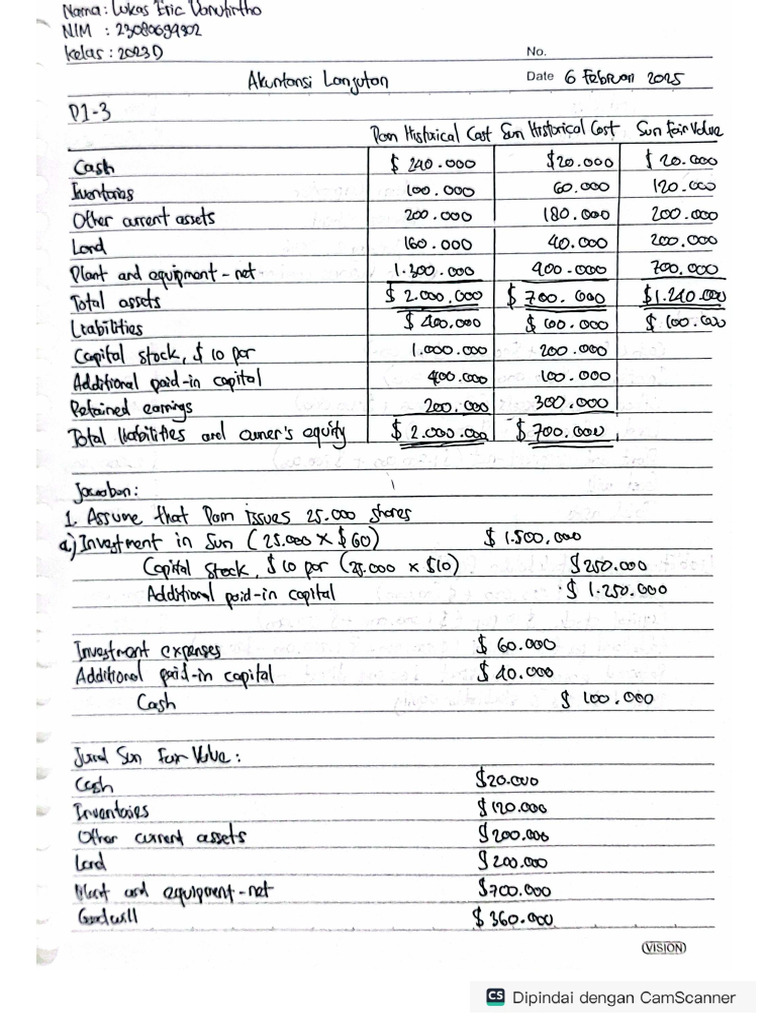 Nama : Lukas Eric
NIM : 23080694302
Kelas : 2023D
No.
Akuntansi Lanjutan
Date 6 Februari 2025
P1-3
Pam Historical Cost Sun Historical Cost Sun Fair Value
Cash $ 240.000 $20.000 $ 20.000
Inventories 100.000 60.000 120.000
Other current assets 200.000 180.000 200.000
Land 160.000 40.000 200.000
Plant and equipment - net 1.300.000 400.000 700.000
Total assets $ 2.000.000 $ 700.000 $1.240.000
Liabilities $ 400.000 $ 100.000 $ 100.000
Capital stock, $ 10 par 1.000.000 200.000
Additional paid-in capital 400.000 100.000
Retained earnings 200.000 300.000
Total liabilities and owner's equity $ 2.000.000 $ 700.000
Jawaban :
1. Assume that Pam issues 25.000 shares
a) Investment in Sun (25.000 x $ 60) $ 1.500.000
Capital Stock, $ 10 par (25.000 x $10) $ 250.000
Additional paid-in capital $ 1.250.000
Investment expenses $ 60.000
Additional paid-in capital $ 40.000
Cash $ 100.000
Jurnal Sun Fair Value :
Cash $20.000
Inventories $ 120.000
Other current assets $ 200.000
Land $ 200.000
Plant and equipment - net $700.000
Goodwill $ 360.000
VISION
CS Dipindai dengan CamScanner